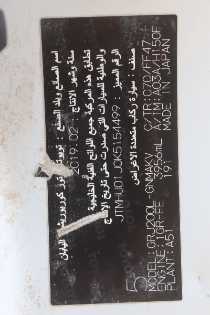 اسم الصانع وبلد الصنع : تويوتا موتور كوربوريشن اليابان
سنة وشهر الانتاج : 2019.02
تطابق هذه المركبة جميع اللوائح الفنية الخليجية
والوطنية للسيارات التي صدرت حتى تاريخ الإنتاج
الرقم المميز : JTMHU01JOK5154499
صنف : سيارة ركاب متعددة الاغراض
MODEL: GRJ200L-GNMAKV
ENGINE: 1GR-FE 3956mL
PLANT: A51
C/TR: 070/FF47
MADE IN JAPAN